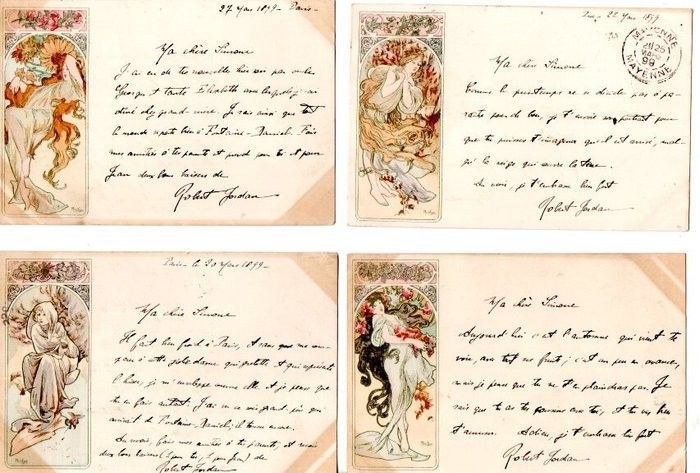 27 Mars 1899 - Paris -
Ma chère Simone
J'ai eu de tes nouvelles hier soir par oncle
George et tante Elisabeth avec lesquels j'ai
diné chez grand-mère. Je sais ainsi que tout
le monde va bien à Fontaine-Daniel. Fais
mes amitiés à tes parents et prends pour toi et pour
Jean deux bons baisers de
Robert Jordan
Paris - 22 Mars 1899
MAYENNE
MARS
99
MAYENNE
Ma chère Simone
Comme le printemps ne se décide pas à
raître pour de bon, je t'envoie un portrait pour
que tu puisses t'imaginer qu'il est arrivé, mal-
gré la neige qui couvre la terre.
Au revoir, je t'embrasse bien fort
Robert Jordan
Paris - le 20 Mars 1899 -
Ma chère Simone
Il fait bien froid à Paris, et sans que me
à cette jolie dame qui grelotte et qui représente
l'hiver, je m'enveloppe comme elle et je pense que
tu en fais autant. J'ai vu ce soir
arrivait de Fontaine-Daniel;
Au revoir, fais mes amitiés à tes parents, et reçois
deux bons baisers (1 pour toi, 1 pour Jean) de
Robert Jordan
Ma chère Simone
Aujourd'hui c'est l'automne qui vient te
voir, avec tout ses fruits; c'est un peu en avance,
mais je pense que tu ne t'en plaindras pas. Je
sais que tu as tes cousins avec toi, et tu dois bien
t'amuser. Adieu, je t'embrasse bien fort
Robert Jordan